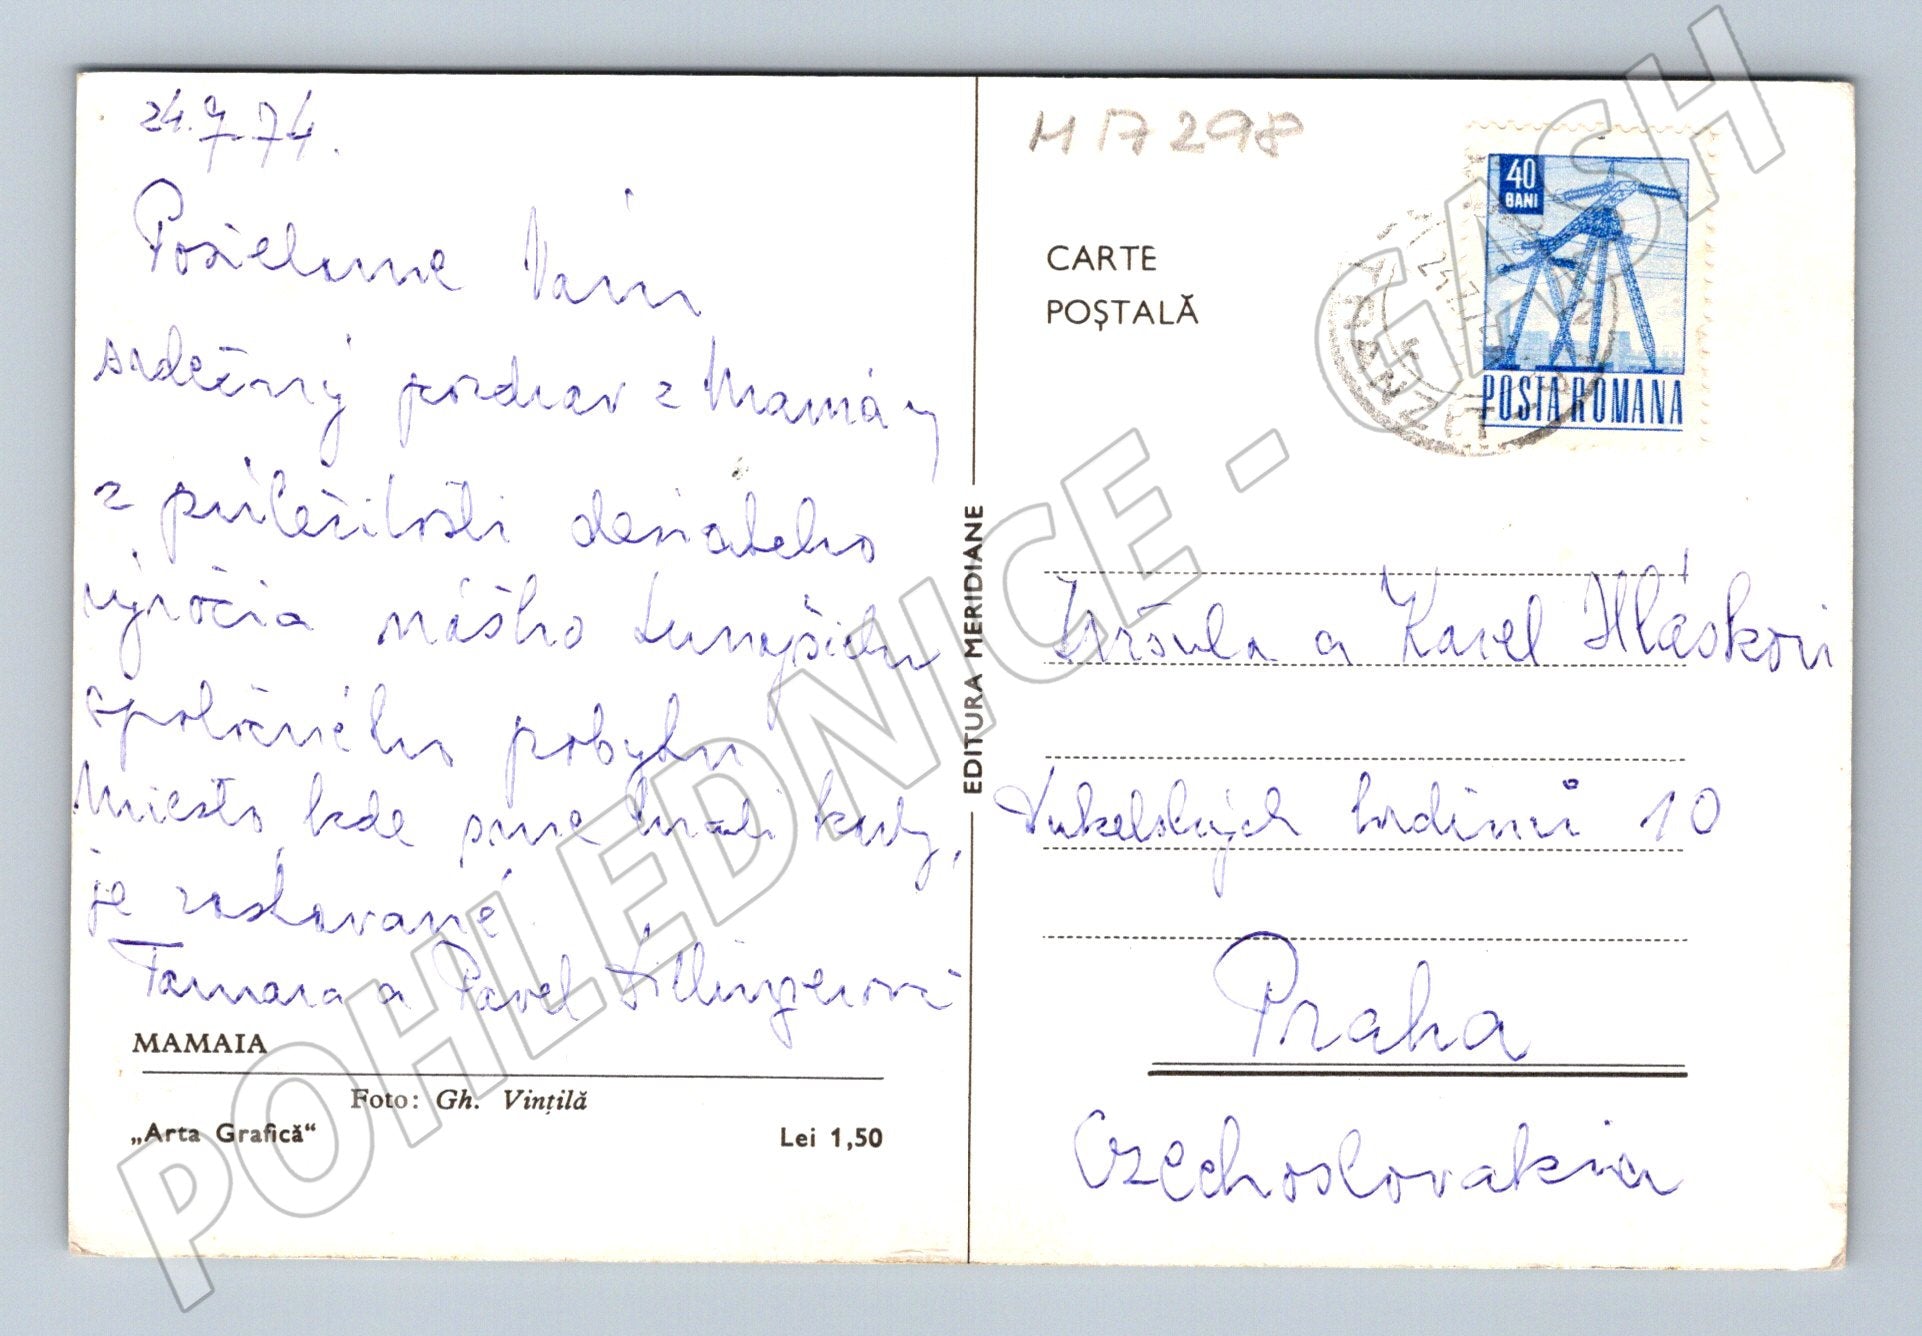 24.7.74.
Posielame Vám
srdečný pozdrav z Mamáy
z príležitosti desiateho
výročia nášho tunajšieho
spoločného pobytu
Miesto, kde sme hrali karty,
je zastavané.
Tamara a Pavel
MAMAIA
Foto: Gh. Vințilă
„Arta Grafică“
Lei 1,50
EDITURA MERIDIANE
M 17298
CARTE
POȘTALĂ
40
BANI
POSTA ROMANA
a Karel Hláskovi
Dukelských hrdinů 10
Praha
Czechoslovakia
POHLEDNICE - GASH